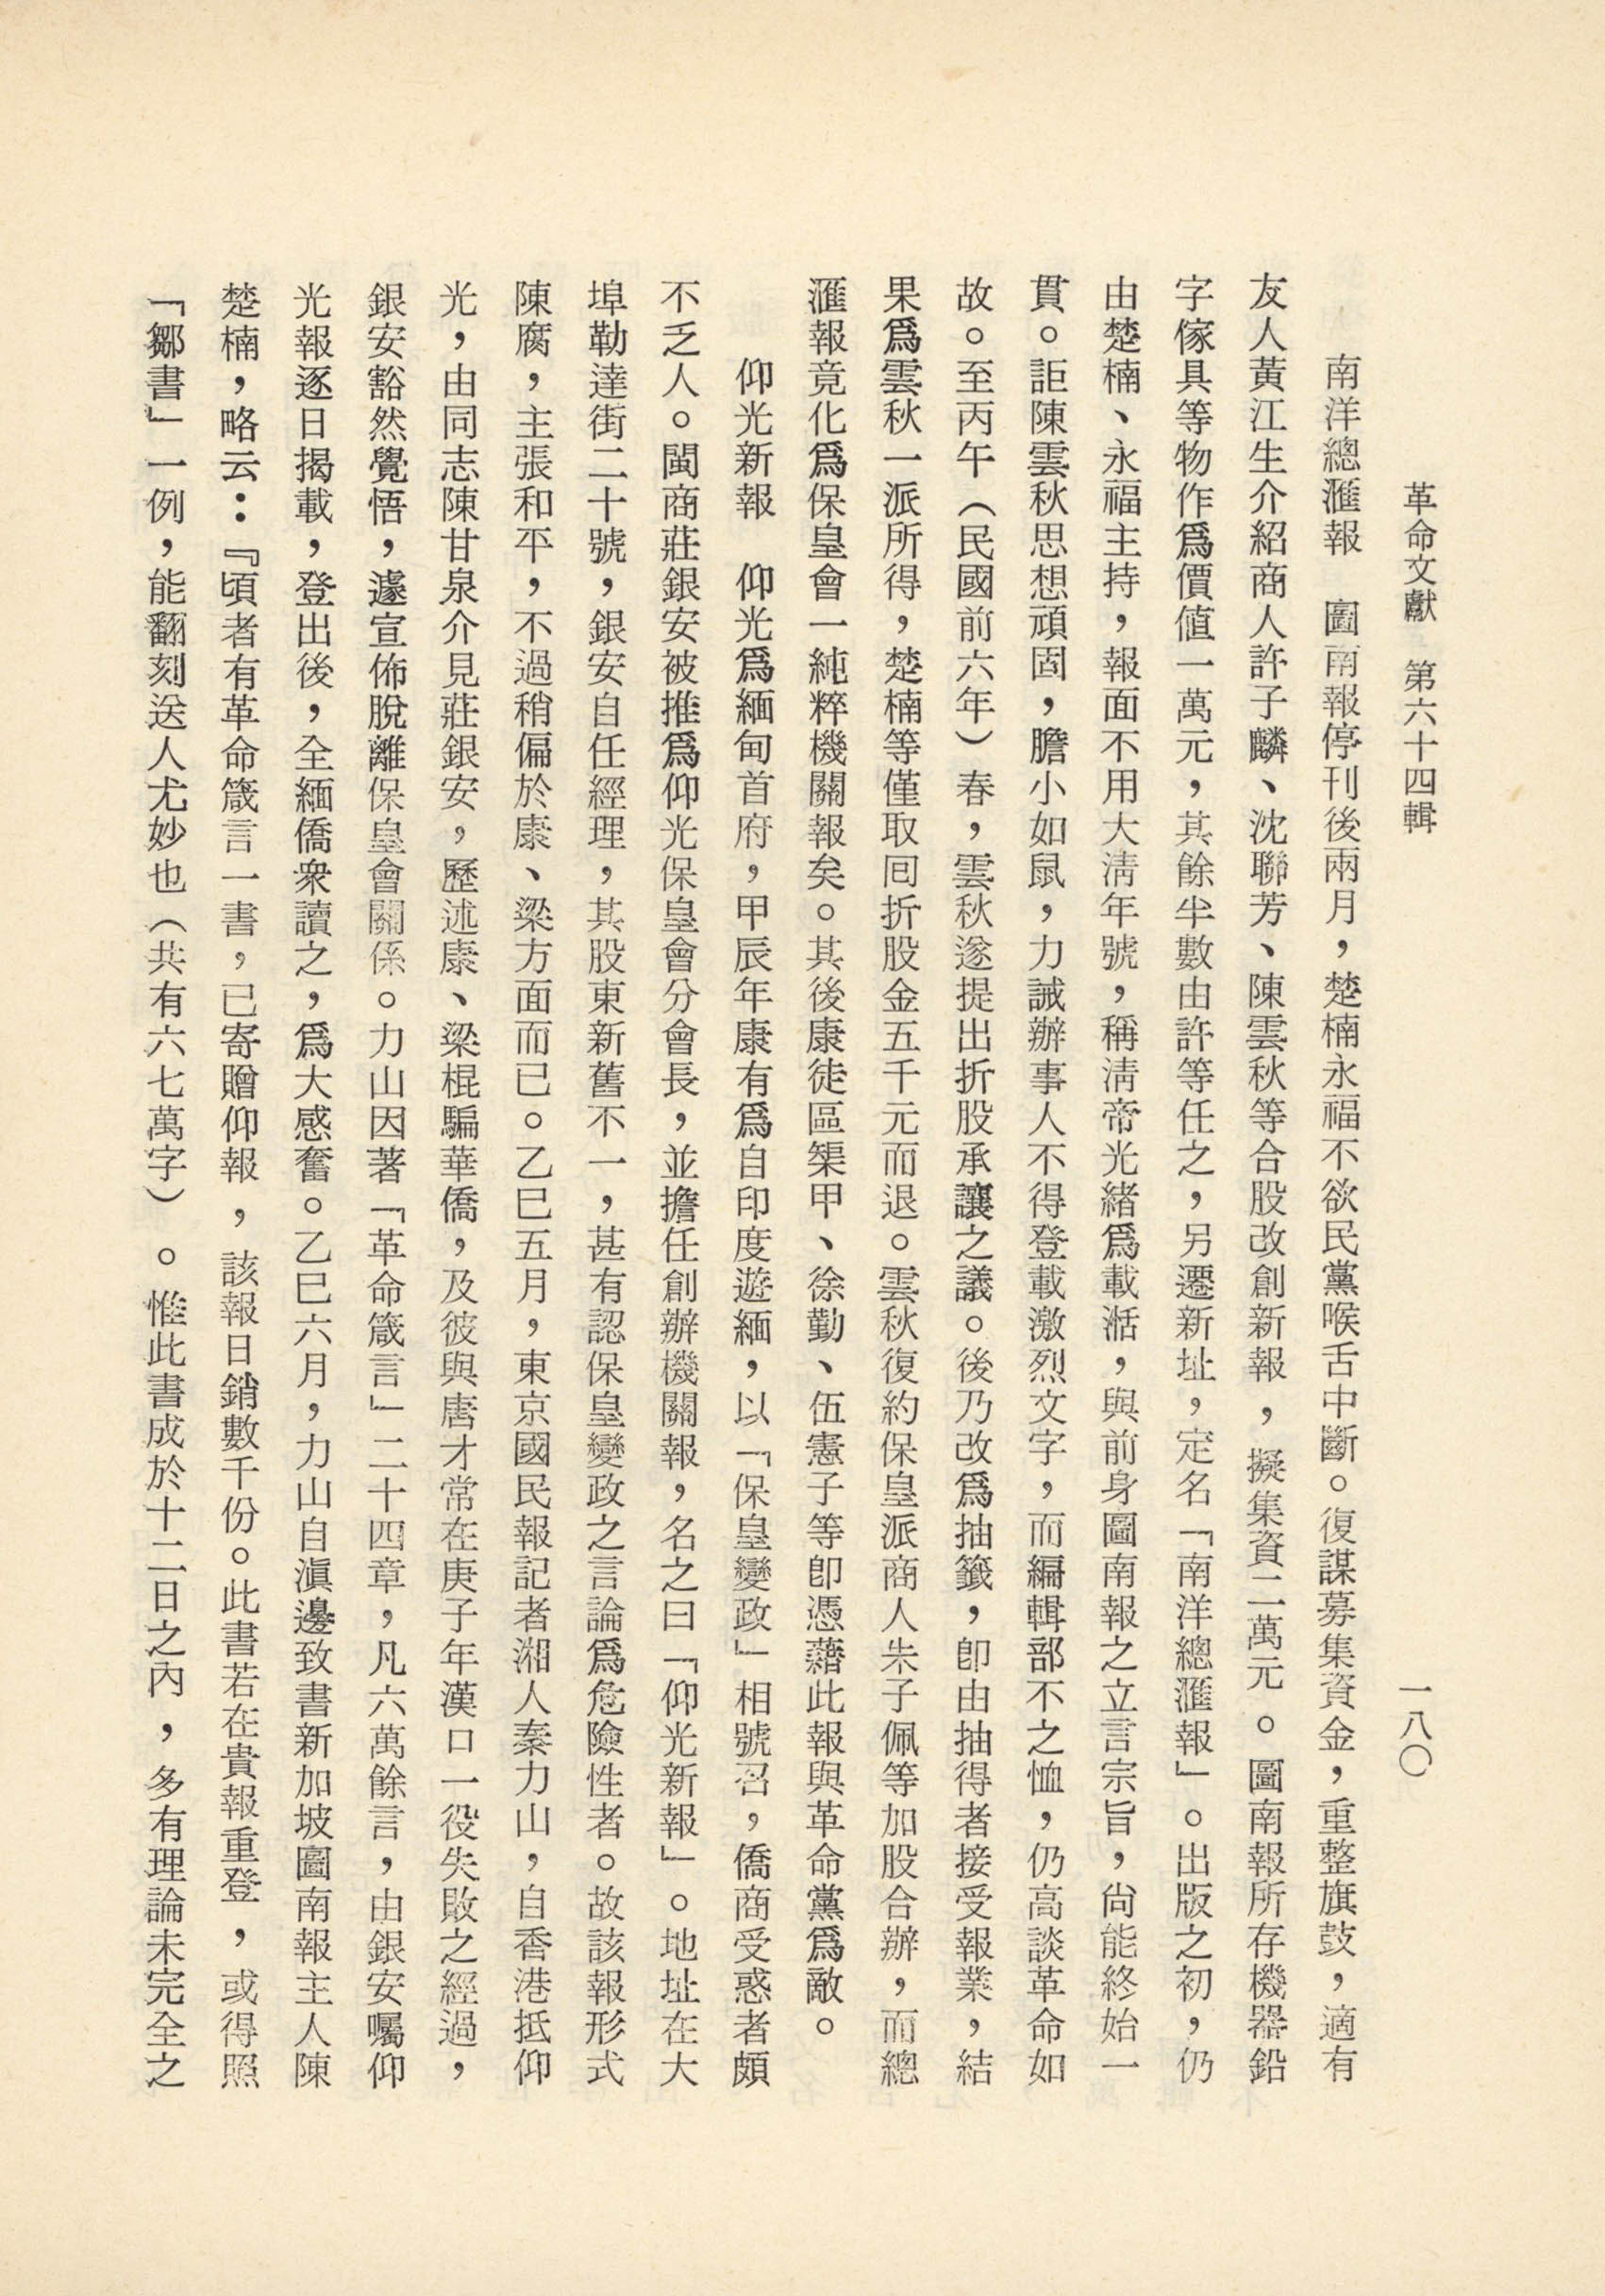 革命文獻　第六十四輯
一八〇
南洋總滙報　圖南報停刊後兩月，楚楠永福不欲民黨喉舌中斷。復謀募集資金，重整旗鼓，適有
友人黃江生介紹商人許子麟、沈聯芳、陳雲秋等合股改創新報，擬集資二萬元。圖南報所存機器鉛
字傢具等物作爲價值一萬元，其餘半數由許等任之，另遷新址，定名「南洋總滙報」。出版之初，仍
由楚楠、永福主持，報面不用大淸年號，稱淸帝光緒爲載湉，與前身圖南報之立言宗旨，尙能終始一
貫。詎陳雲秋思想頑固，膽小如鼠，力誡辦事人不得登載激烈文字，而編輯部不之恤，仍高談革命如
故。至丙午（民國前六年）春，雲秋遂提出折股承讓之議。後乃改爲抽籤，卽由抽得者接受報業，結
果爲雲秋一派所得，楚楠等僅取囘折股金五千元而退。雲秋復約保皇派商人朱子佩等加股合辦，而總
滙報竟化爲保皇會一純粹機關報矣。其後康徒區榘甲、徐勤、伍憲子等卽憑藉此報與革命黨爲敵。
仰光新報　仰光爲緬甸首府，甲辰年康有爲自印度遊緬，以「保皇變政」相號召，僑商受惑者頗
不乏人。閩商莊銀安被推爲仰光保皇會分會長，並擔任創辦機關報，名之曰「仰光新報」。地址在大
埠勒達街二十號，銀安自任經理，其股東新舊不一，甚有認保皇變政之言論爲危險性者。故該報形式
陳腐，主張和平，不過稍偏於康、梁方面而已。乙巳五月，東京國民報記者湘人秦力山，自香港抵仰
光，由同志陳甘泉介見莊銀安，歷述康、梁棍騙華僑，及彼與唐才常在庚子年漢口一役失敗之經過，
銀安豁然覺悟，遽宣佈脫離保皇會關係。力山因著「革命箴言」二十四章，凡六萬餘言，由銀安囑仰
光報逐日揭載，登出後，全緬僑衆讀之，爲大感奮。乙巳六月，力山自滇邊致書新加坡圖南報主人陳
楚楠，略云：『頃者有革命箴言一書，已寄贈仰報，該報日銷數千份。此書若在貴報重登，或得照
「鄒書」一例，能翻刻送人尤妙也（共有六七萬字）。惟此書成於十二日之內，多有理論未完全之